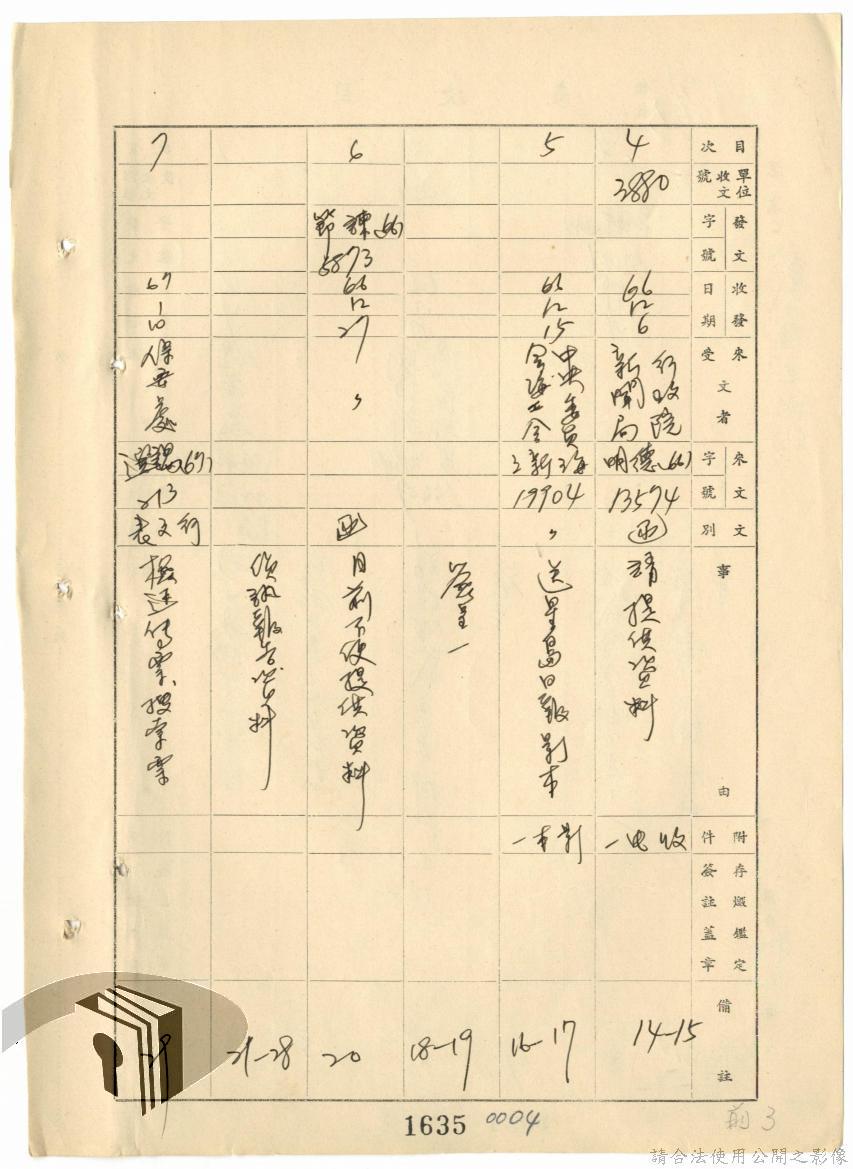 目次
單位收文號
發文字號
收發日期
來受文者
來文字號
文別
事由
附件
存燬鑑定簽註蓋章
備註
4
3880
66
12
6
行政院
新聞局
明德(66)
13574
函
請提供資料
收电一
14-15
5
66
12
15
中央委員
會海工會
19904
〃
送星島日報影本
影本一
16-17
簽呈一
18-19
6
(66)
5873
66
12
27
〃
函
目前不便提供資料
20
偵訊報告資料
21-28
7
67
1
10
保安處
(67)
213
行文表
檢送傳票、搜索票
29
1635
0004
前3
請合法使用公開之影像